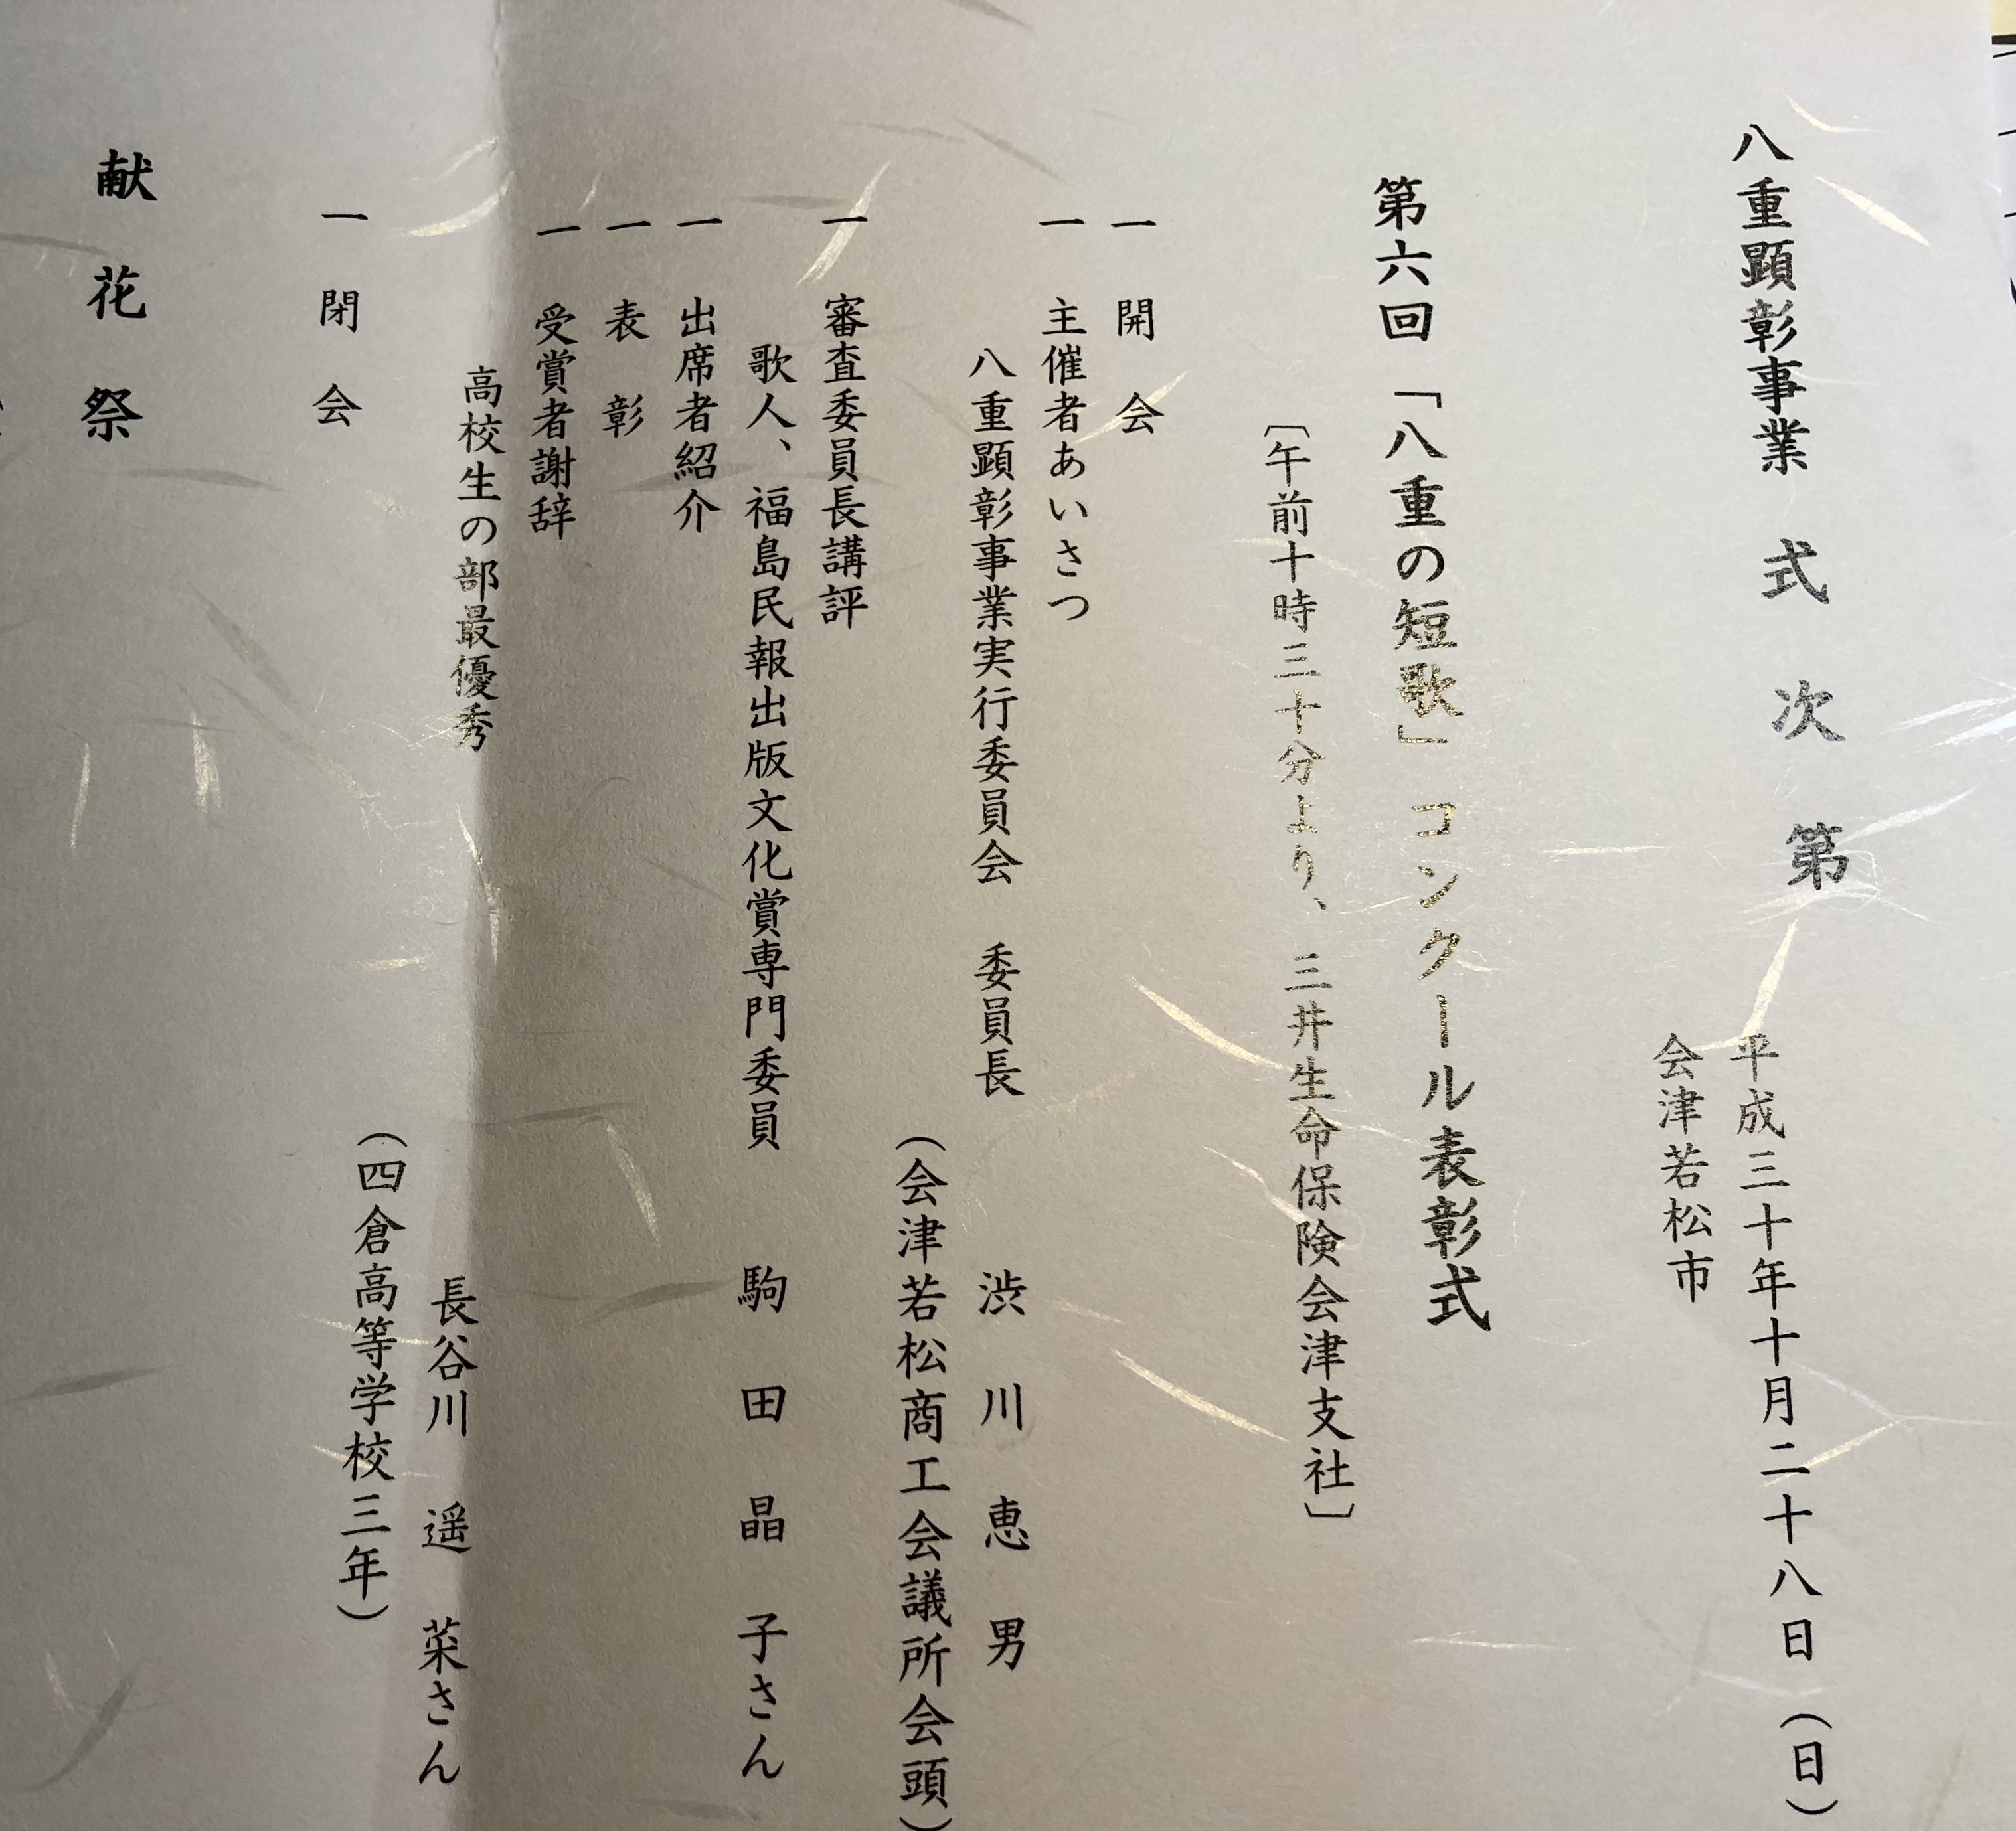 八重顕彰事業　式　次　第
平成三十年十月二十八日（日）
会津若松市
第六回「八重の短歌」コンクール表彰式
〔午前十時三十分より、三井生命保険会津支社〕
一　開　会
一　主催者あいさつ
八重顕彰事業実行委員会　委員長　渋　川　恵　男
（会津若松商工会議所会頭）
一　審査委員長講評
歌人、福島民報出版文化賞専門委員　駒　田　晶　子さん
一　出席者紹介
一　表　彰
一　受賞者謝辞
高校生の部最優秀　長谷川　遥　菜さん
（四倉高等学校三年）
一　閉　会
献　花　祭